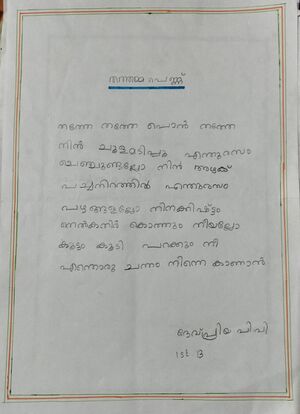 തത്തമ്മ പെണ്ണ്
തത്തേ തത്തേ പൊൻ തത്തേ
നിൻ ചൂളമടിപ്പൂ എന്തുരസം
ചെഞ്ചുണ്ടല്ലോ നിൻ അഴക്
പച്ചനിറത്തിൻ എന്തുരസം
പഴങ്ങളല്ലോ നിനക്കിഷ്ടം
നെൽകതിർ കൊത്തും നീയല്ലോ
കൂട്ടം കൂടി പറക്കും നീ
എന്തൊരു ചന്തം നിന്നെ കാണാൻ
ദേവപ്രിയ പി പി
1st B